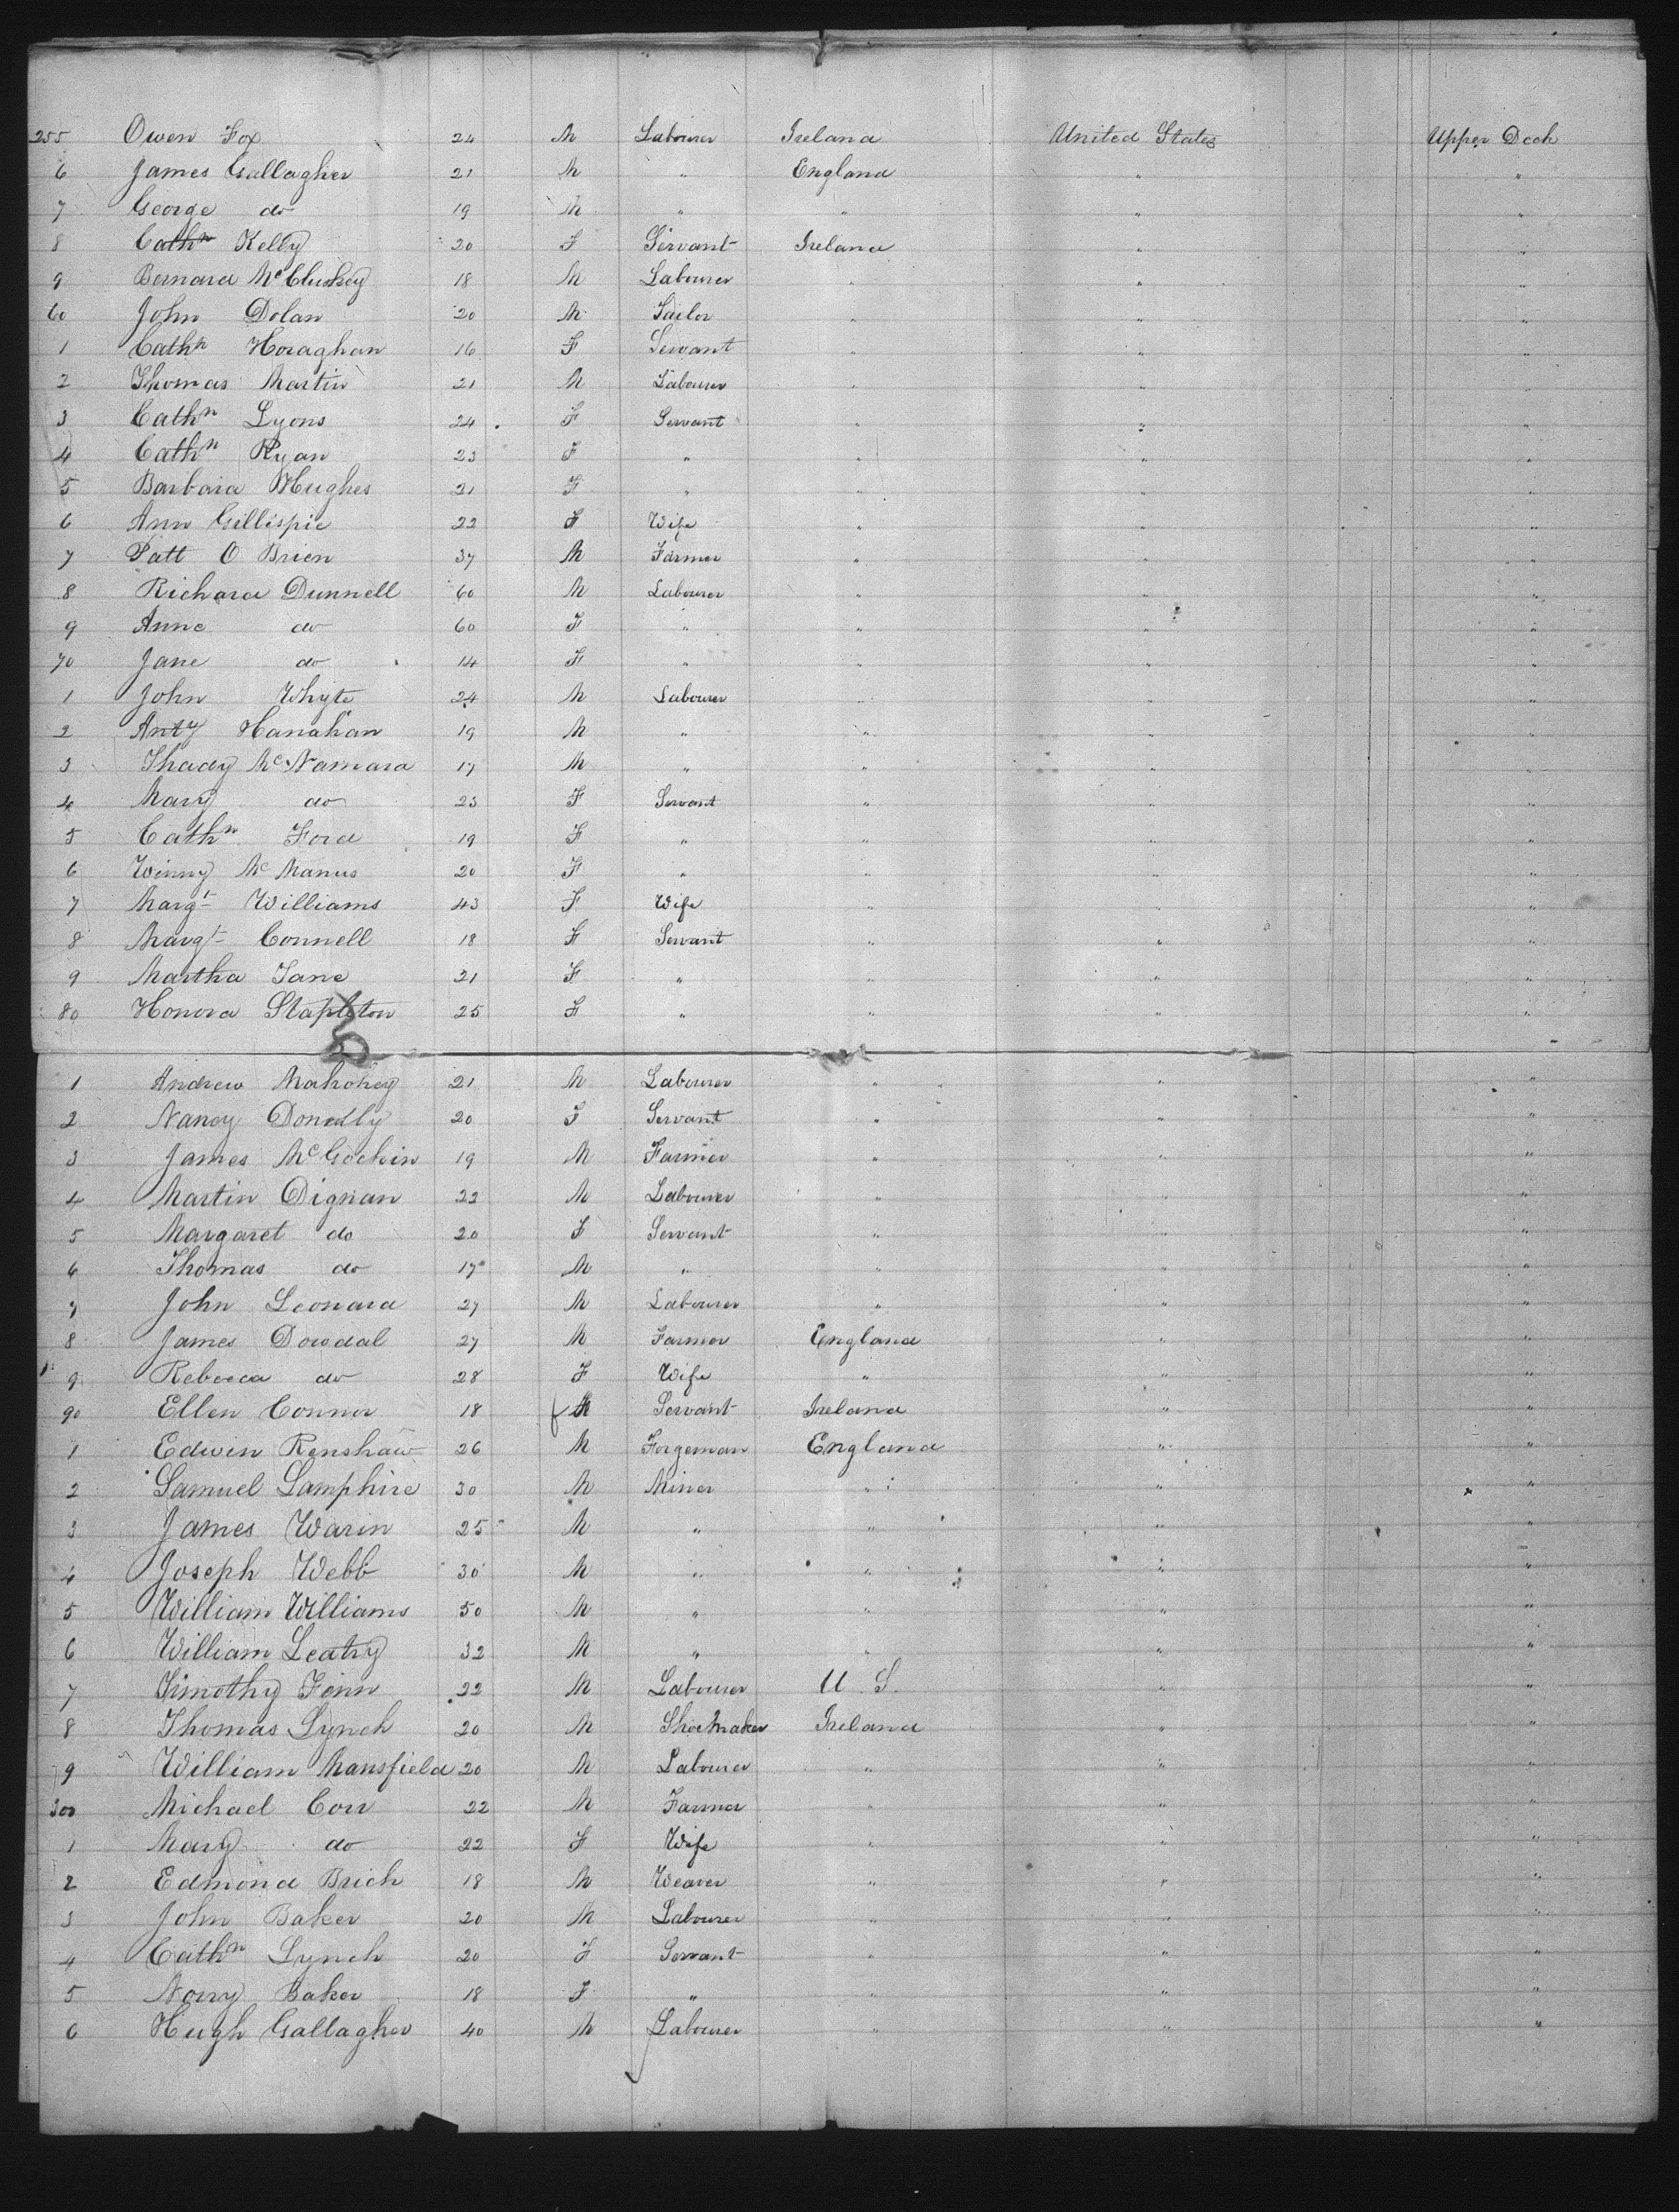 255 Owen Fox 24 M Labourer Ireland United States Upper Deck
6 James Gallagher 21 M " England " "
7 George do 19 M " " " "
8 Cathn Kelly 20 F Servant Ireland " "
9 Bernard McCluskey 18 M Labourer " " "
60 John Dolan 20 M Tailor " " "
1 Cathn Horaghan 16 F Servant " " "
2 Thomas Martin 21 M Labourer " " "
3 Cathn Lyons 24 F Servant " " "
4 Cathn Ryan 23 F " " " "
5 Barbara Hughes 21 F " " " "
6 Ann Gillispie 22 F Wife " " "
7 Patt O Brien 37 M Farmer " " "
8 Richard Dunnell 60 M Labourer " " "
9 Anne do 60 F " " " "
70 Jane do 14 F " " " "
1 John Whyte 24 M Labourer " " "
2 Anty Hanahan 19 M " " " "
3 Thady McNamara 17 M " " " "
4 Mary do 23 F Servant " " "
5 Cathn Ford 19 F " " " "
6 Winny McManus 20 F " " " "
7 Margt Williams 43 F Wife " " "
8 Margt Connell 18 F Servant " " "
9 Martha Jane 21 F " " " "
80 Honora Stapleton 25 F " " " "
1 Andrew Mahoney 21 M Labourer " " "
2 Nancy Donelly 20 F Servant " " "
3 James 19 M Farmer " " "
4 Martin Dignan 22 M Labourer " " "
5 Margaret do 20 F Servant " " "
6 Thomas do 17 M " " " "
7 John Leonard 27 M Labourer " " "
8 James Dowdal 27 M Farmer England " "
9 Rebecca do 28 F Wife " " "
90 Ellen Connor 18 f Servant Ireland " "
1 Edwin Renshaw 26 M Forgeman England " "
2 Samuel Lamphire 30 M Miner " " "
3 James Warin 25 M " " " "
4 Joseph Webb 30 M " " " "
5 William Williams 50 M " " " "
6 William Leahy 32 M " " " "
7 Timothy Finn 22 M Labourer U.S. " "
8 Thomas Lynch 20 M ShoeMaker Ireland " "
9 William Mansfield 20 M Labourer " " "
300 Michael Corr 22 M Farmer " " "
1 Mary do 22 F Wife " " "
2 Edmond Brich 18 M Weaver " " "
3 John Baker 20 M Labourer " " "
4 Cathn Lynch 20 F Servant " " "
5 Norry Baker 18 F " " " "
6 Hugh Gallagher 40 M Labourer " " "